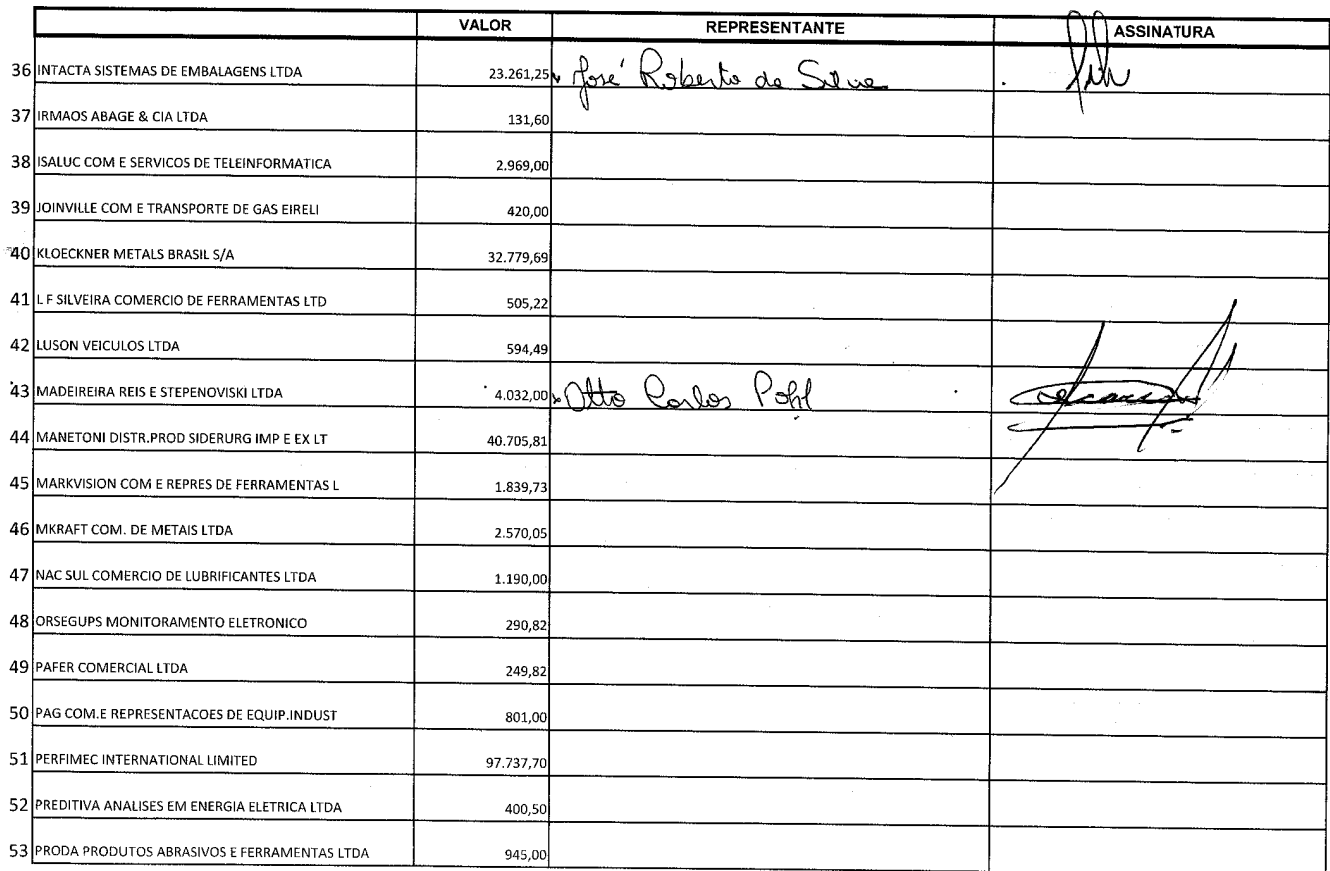 VALOR REPRESENTANTE ASSINATURA
36 INTACTA SISTEMAS DE EMBALAGENS LTDA 23.261,25 José Roberto da Silva
37 IRMAOS ABAGE & CIA LTDA 131,60
38 ISALUC COM E SERVICOS DE TELEINFORMATICA 2.969,00
39 JOINVILLE COM E TRANSPORTE DE GAS EIRELI 420,00
40 KLOECKNER METALS BRASIL S/A 32.779,69
41 L F SILVEIRA COMERCIO DE FERRAMENTAS LTD 505,22
42 LUSON VEICULOS LTDA 594,49
43 MADEIREIRA REIS E STEPENOVISKI LTDA 4.032,00 Otto Carlos Pohl
44 MANETONI DISTR.PROD SIDERURG IMP E EX LT 40.705,81
45 MARKVISION COM E REPRES DE FERRAMENTAS L 1.839,73
46 MKRAFT COM. DE METAIS LTDA 2.570,05
47 NAC SUL COMERCIO DE LUBRIFICANTES LTDA 1.190,00
48 ORSEGUPS MONITORAMENTO ELETRONICO 290,82
49 PAFER COMERCIAL LTDA 249,82
50 PAG COM.E REPRESENTACOES DE EQUIP.INDUST 801,00
51 PERFIMEC INTERNATIONAL LIMITED 97.737,70
52 PREDITIVA ANALISES EM ENERGIA ELETRICA LTDA 400,50
53 PRODA PRODUTOS ABRASIVOS E FERRAMENTAS LTDA 945,00